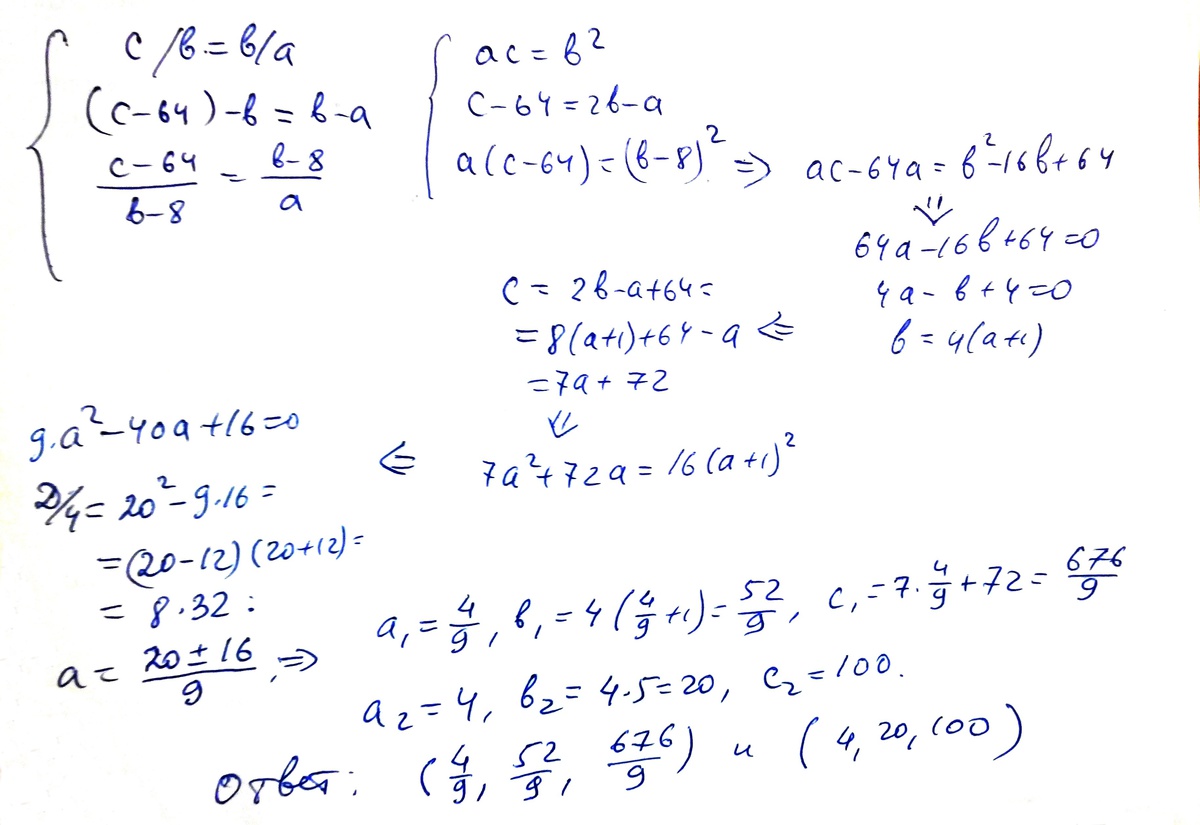 c/в = в/a
(c-64)-в = в-a
c-64/в-8 = в-8/a
ac = в²
c-64 = 2в-a
a(c-64) = (в-8)² => ac-64a = в²-16в+64
64a-16в+64=0
4a-в+4=0
в = 4(a+1)
c = 2в-a+64=
=8(a+1)+64-a <=
=7a+72
7a²+72a = 16(a+1)²
<=
9·a²-40a+16=0
D/4 = 20²-9·16=
=(20-12)(20+12)=
= 8·32 :
a = 20±16/9, =>
a₁ = 4/9, в₁ = 4(4/9+1) = 52/9, c₁ = 7·4/9+72 = 676/9
a₂ = 4, в₂ = 4·5=20, c₂ = 100.
Ответ: (4/9, 52/9, 676/9) и (4, 20, 100)